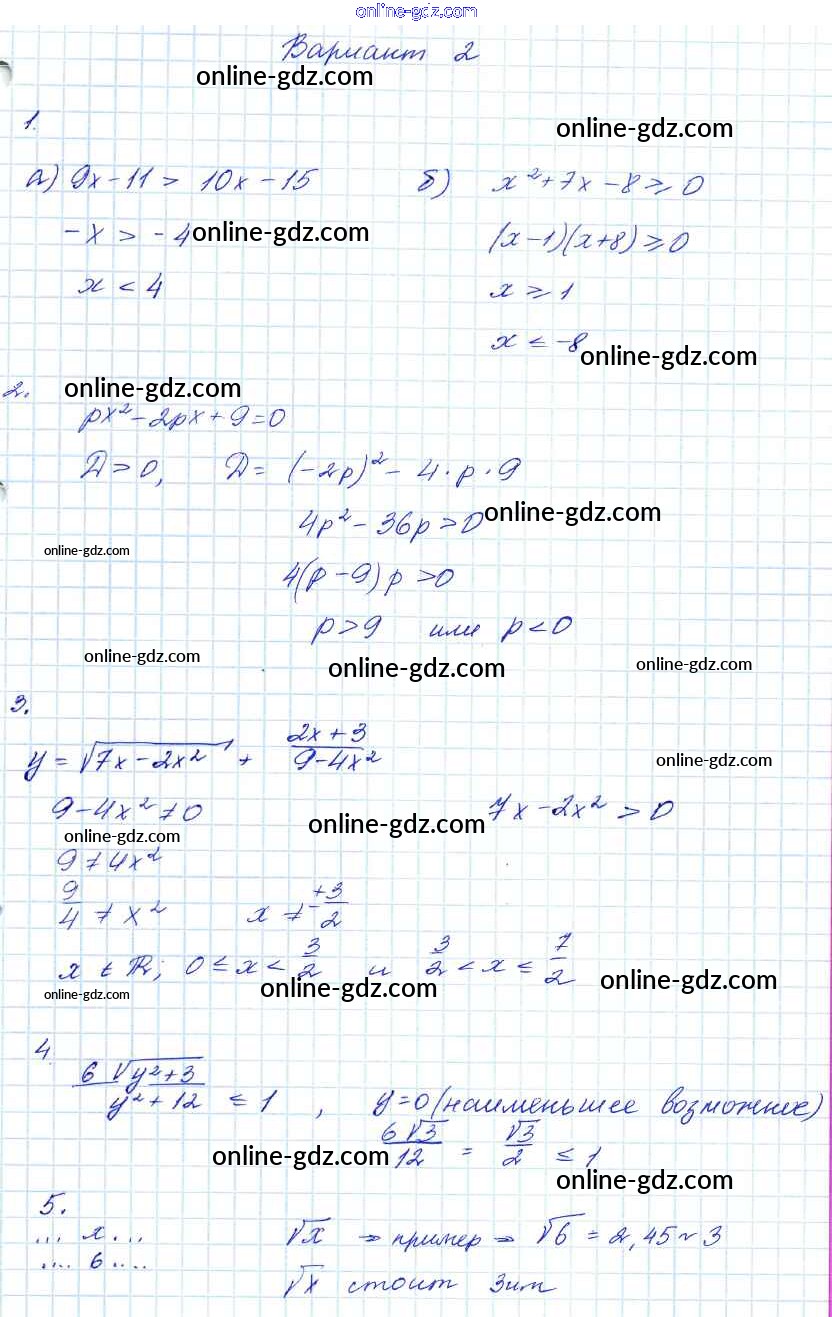 online-gdz.com
Вариант 2
online-gdz.com
1.
online-gdz.com
а) 9x - 11 > 10x - 15
-x > -4
online-gdz.com
x < 4
б) x² + 7x - 8 ≥ 0
(x - 1)(x + 8) ≥ 0
x ≥ 1
x ≤ -8
online-gdz.com
2.
online-gdz.com
px² - 2px + 9 = 0
D > 0, D = (-2p)² - 4 · p · 9
4p² - 36p > 0
online-gdz.com
online-gdz.com
4(p - 9) p > 0
p > 9 или p < 0
online-gdz.com
online-gdz.com
online-gdz.com
3.
y = √(7x - 2x²) + (2x + 3)/(9 - 4x²)
online-gdz.com
9 - 4x² ≠ 0
7x - 2x² > 0
online-gdz.com
online-gdz.com
9 ≠ 4x²
9/4 ≠ x² x ≠ ± 3/2
x ∈ R; 0 ≤ x < 3/2 и 3/2 < x ≤ 7/2
online-gdz.com
online-gdz.com
online-gdz.com
4
6√(y² + 3)/(y² + 12) ≤ 1, y = 0 (наименьшее возможное)
6√3/12 = √3/2 ≤ 1
online-gdz.com
online-gdz.com
5.
... x ... √x → пример → √6 = 2,45 ~ 3
.... 6 ....
√x стоит 3им